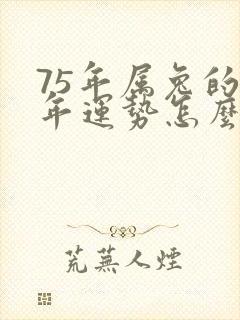 75年属兔的
年運势怎麼
荒蕪人煙